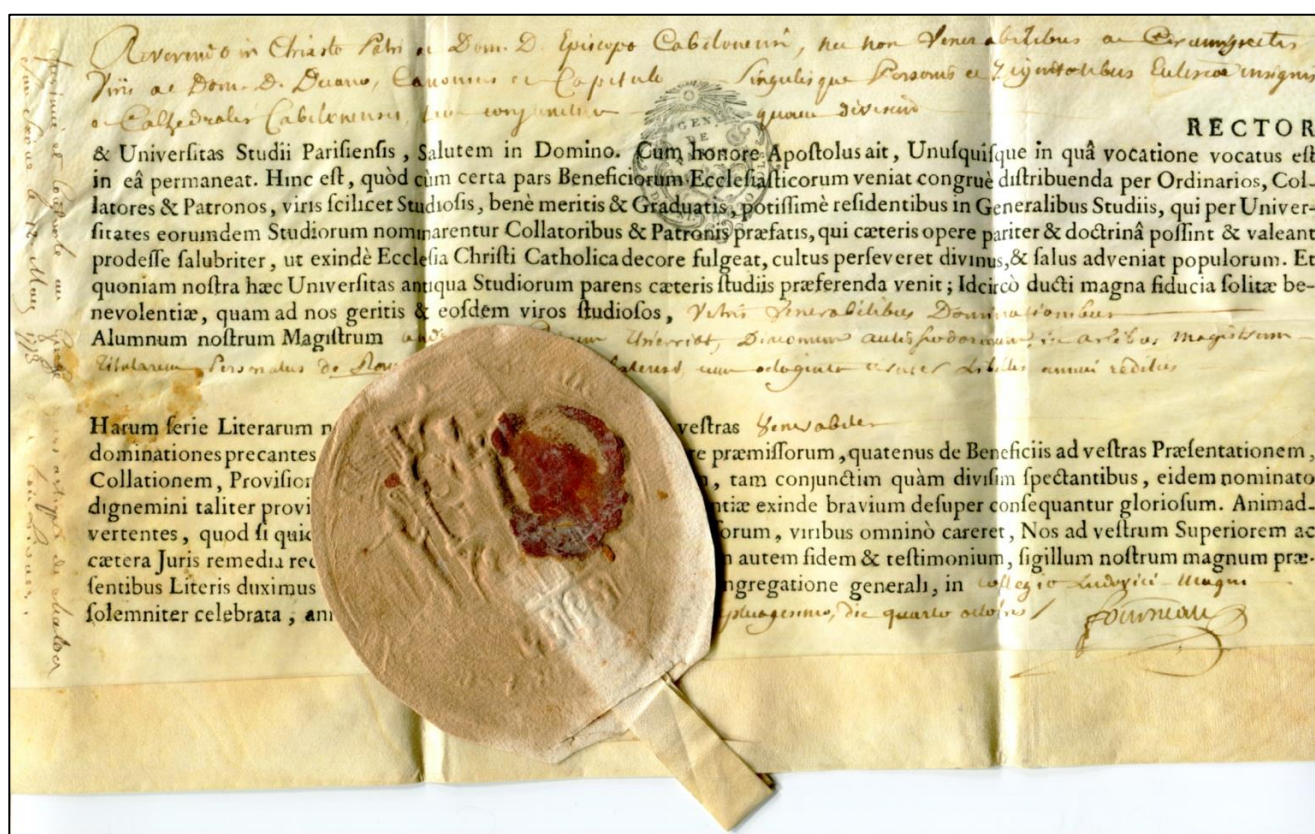 Reverendo in Christo Patri ac Dom. D. Episcopo Cabilonensi, nec non Venerabilibus ac Circumspectis
Viris ac Dom. D. Decano, Canonicis et Capitulo Singulisque Personis et Dignitatibus Ecclesiæ insignis
ac Cathedralis Cabilonensis, tam conjunctim quam divisim
GEN.
DE
RECTOR
& Univerſitas Studii Pariſienſis, Salutem in Domino. Cum honore Apoſtolus ait, Unuſquiſque in quâ vocatione vocatus eſt
in eâ permaneat. Hinc eſt, quòd cùm certa pars Beneficiorum Eccleſiaſticorum veniat congruè diſtribuenda per Ordinarios, Col-
latores & Patronos, viris ſcilicet Studioſis, benè meritis & Graduatis, potiſſimè reſidentibus in Generalibus Studiis, qui per Univer-
ſitates eorumdem Studiorum nominarentur Collatoribus & Patronis præfatis, qui cæteris opere pariter & doctrinâ poſſint & valeant
prodeſſe ſalubriter, ut exindè Eccleſia Chriſti Catholica decore fulgeat, cultus perſeveret divinus, & ſalus adveniat populorum. Et
quoniam noſtra hæc Univerſitas antiqua Studiorum parens cæteris ſtudiis præferenda venit; Idcircò ducti magna fiducia ſolitæ be-
nevolentiæ, quam ad nos geritis & eoſdem viros ſtudioſos, Vestris Venerabilibus Dominationibus
Alumnum noſtrum Magiſtrum Diaconum in artibus magistrum
titularem Personatus de cum octoginta libris annui reditus
Harum ſerie Literarum n veſtras Venerabiles
dominationes precantes e præmiſſorum, quatenus de Beneficiis ad veſtras Præſentationem,
Collationem, Proviſion , tam conjunctim quàm diviſim ſpectantibus, eidem nominato
dignemini taliter provi ntiæ exinde bravium deſuper conſequantur glorioſum. Animad-
vertentes, quod ſi quic forum, viribus omninò careret, Nos ad veſtrum Superiorem ac
cætera Juris remedia rec n autem fidem & teſtimonium, ſigillum noſtrum magnum præ-
ſentibus Literis duximus ngregatione generali, in collegio Ludovici Magni
ſolemniter celebrata, ann ptuagesimo, die quarto octobris
Fourneau